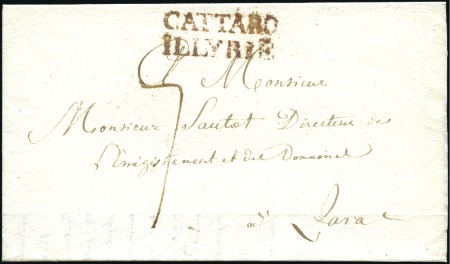 CATTARO
ILLYRIE
A Monsieur
Monsieur Sautot Directeur de
l'Enregistrement et des Domaines
à Zara